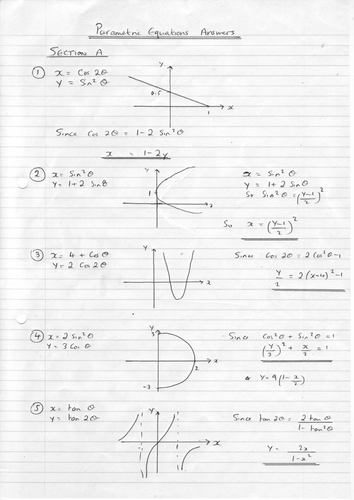 Parametric Equations Answers
SECTION A
① x = Cos 2θ
y = Sin² θ
y
0.5
1
x
Since Cos 2θ = 1 - 2 Sin² θ
x = 1 - 2y
② x = Sin² θ
y = 1 + 2 Sinθ
y
1
x
x = Sin² θ
y = 1 + 2 Sinθ
So Sin² θ = (y-1/2)²
So x = (y-1/2)²
③ x = 4 + Cosθ
y = 2 Cos 2θ
y
x
Since Cos 2θ = 2Cos²θ - 1
y/2 = 2(x-4)² - 1
④ x = 2 Sin² θ
y = 3 Cosθ
y
3
2
x
-3
Since Cos²θ + Sin²θ = 1
(y/3)² + x/2 = 1
y = 9(1 - x/2)
⑤ x = tan θ
y = tan 2θ
y
-1
1
x
Since tan 2θ = 2 tanθ / 1 - tan²θ
y = 2x / 1 - x²